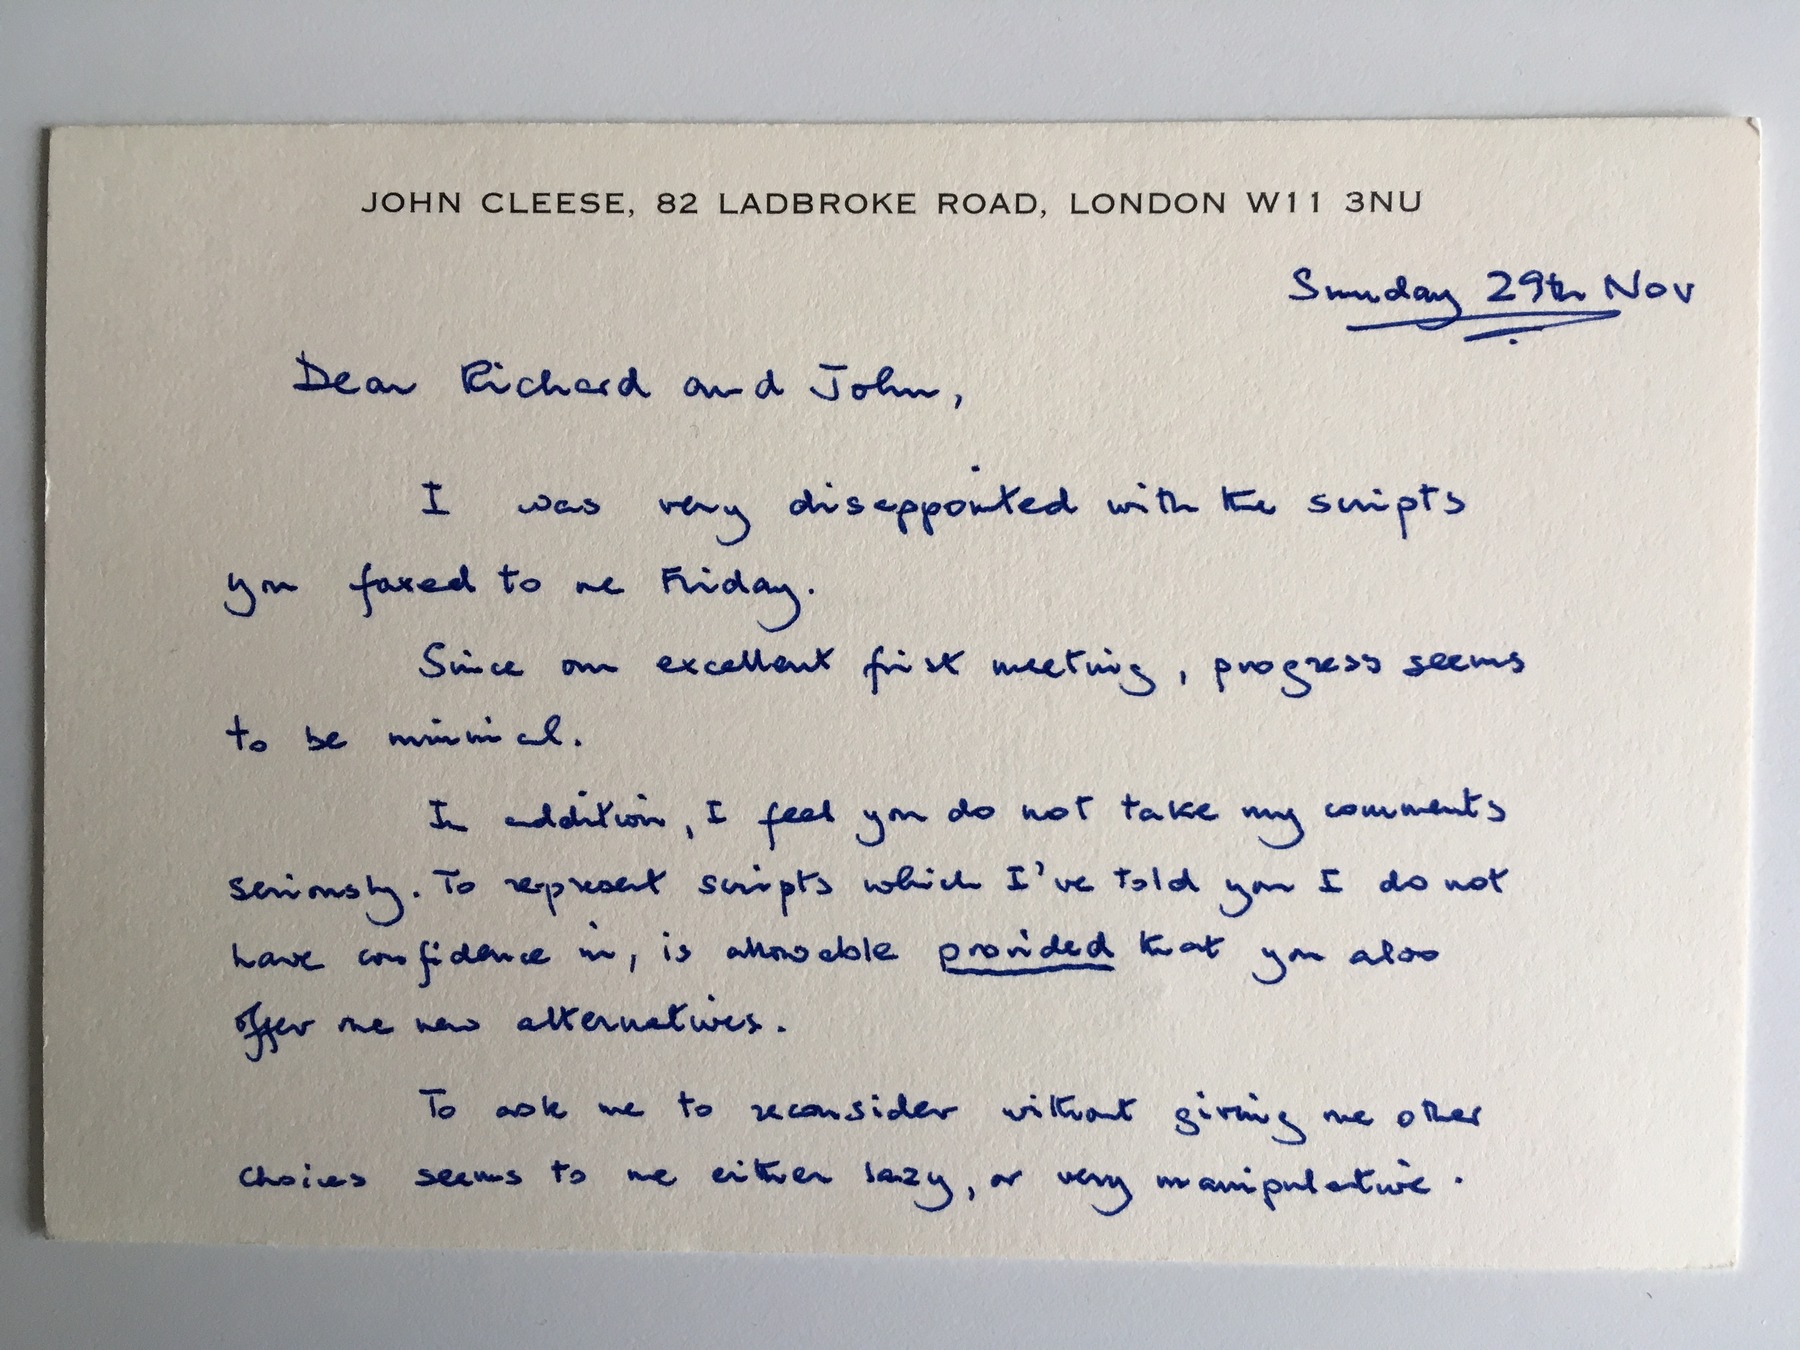 JOHN CLEESE, 82 LADBROKE ROAD, LONDON W11 3NU
Sunday 29th Nov
Dear Richard and John,
I was very disappointed with the scripts
you faxed to me Friday.
Since our excellent first meeting, progress seems
to be minimal.
In addition, I feel you do not take my comments
seriously. To represent scripts which I've told you I do not
have confidence in, is allowable provided that you also
offer me new alternatives.
To ask me to reconsider without giving me other
choices seems to me either lazy, or very manipulative.